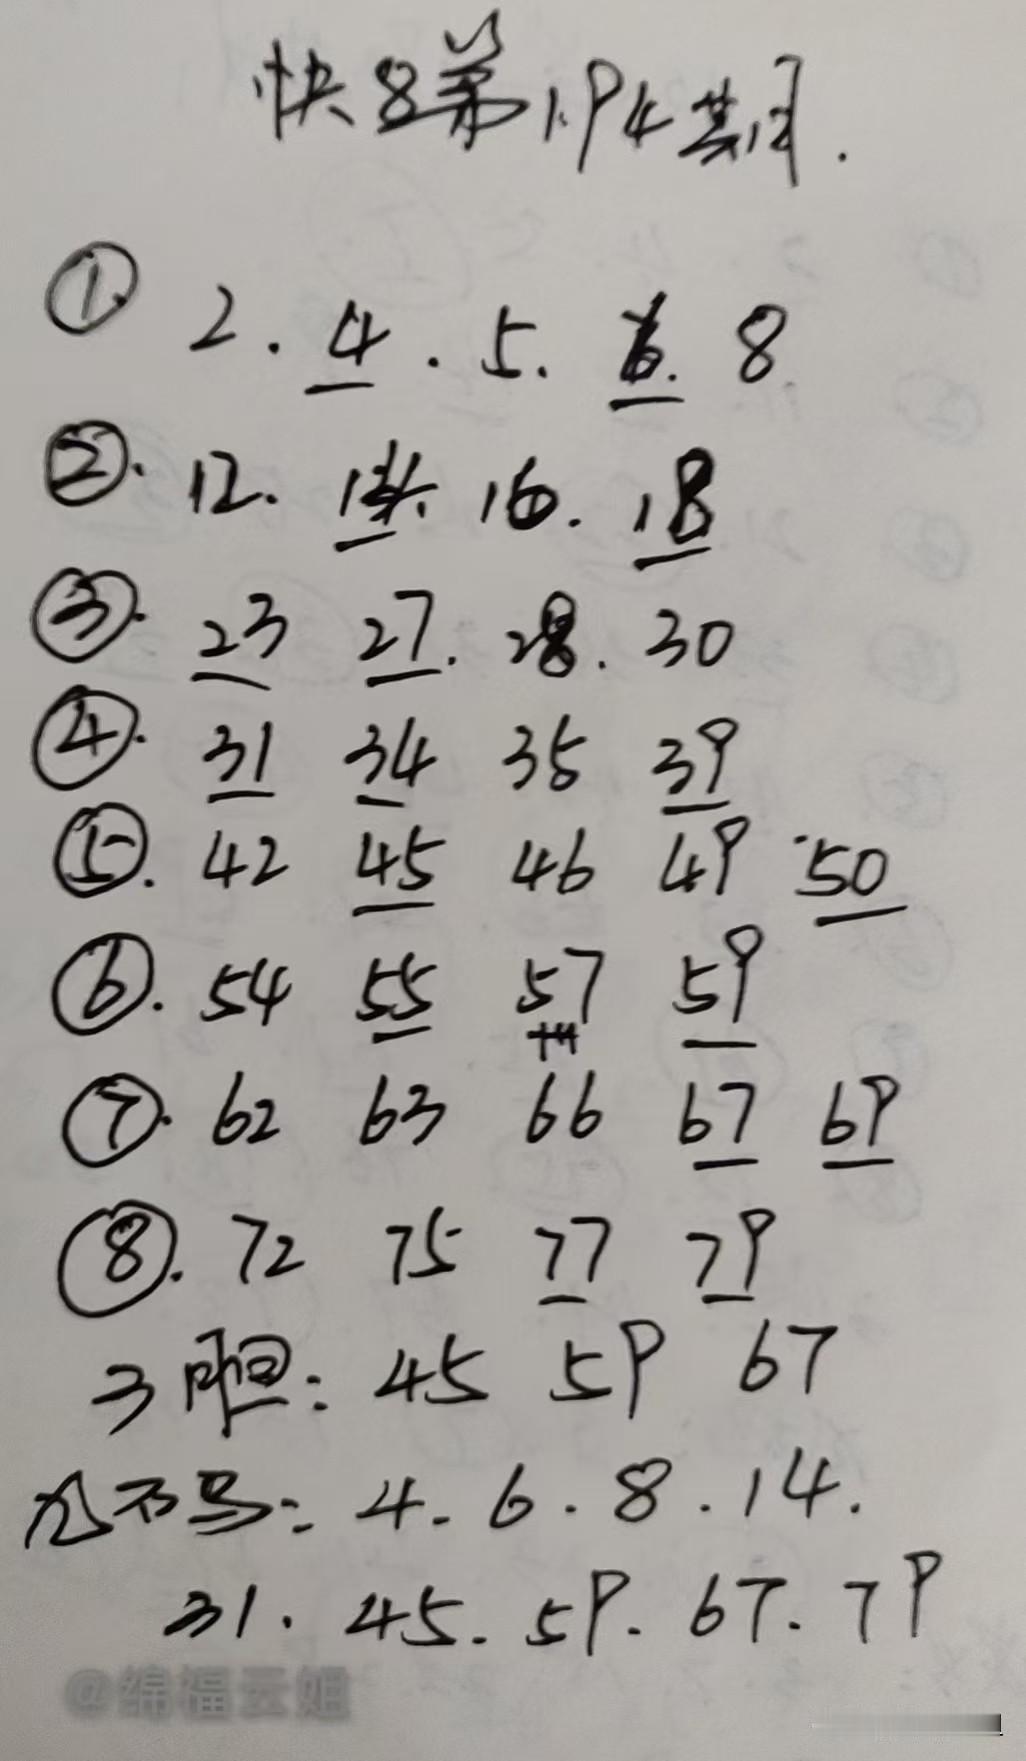 快8第194期.
① 2. 4. 5. 6. 8
②. 12. 14. 16. 18
③. 23 27. 28. 30
④. 31 34 35 39
⑤. 42 45 46 49 50
⑥. 54 55 57 59
⑦. 62 63 66 67 69
⑧. 72 75 77 79
3胆: 45 59 67
: 4. 6. 8. 14.
31. 45. 59. 67. 79
@绵福云姐